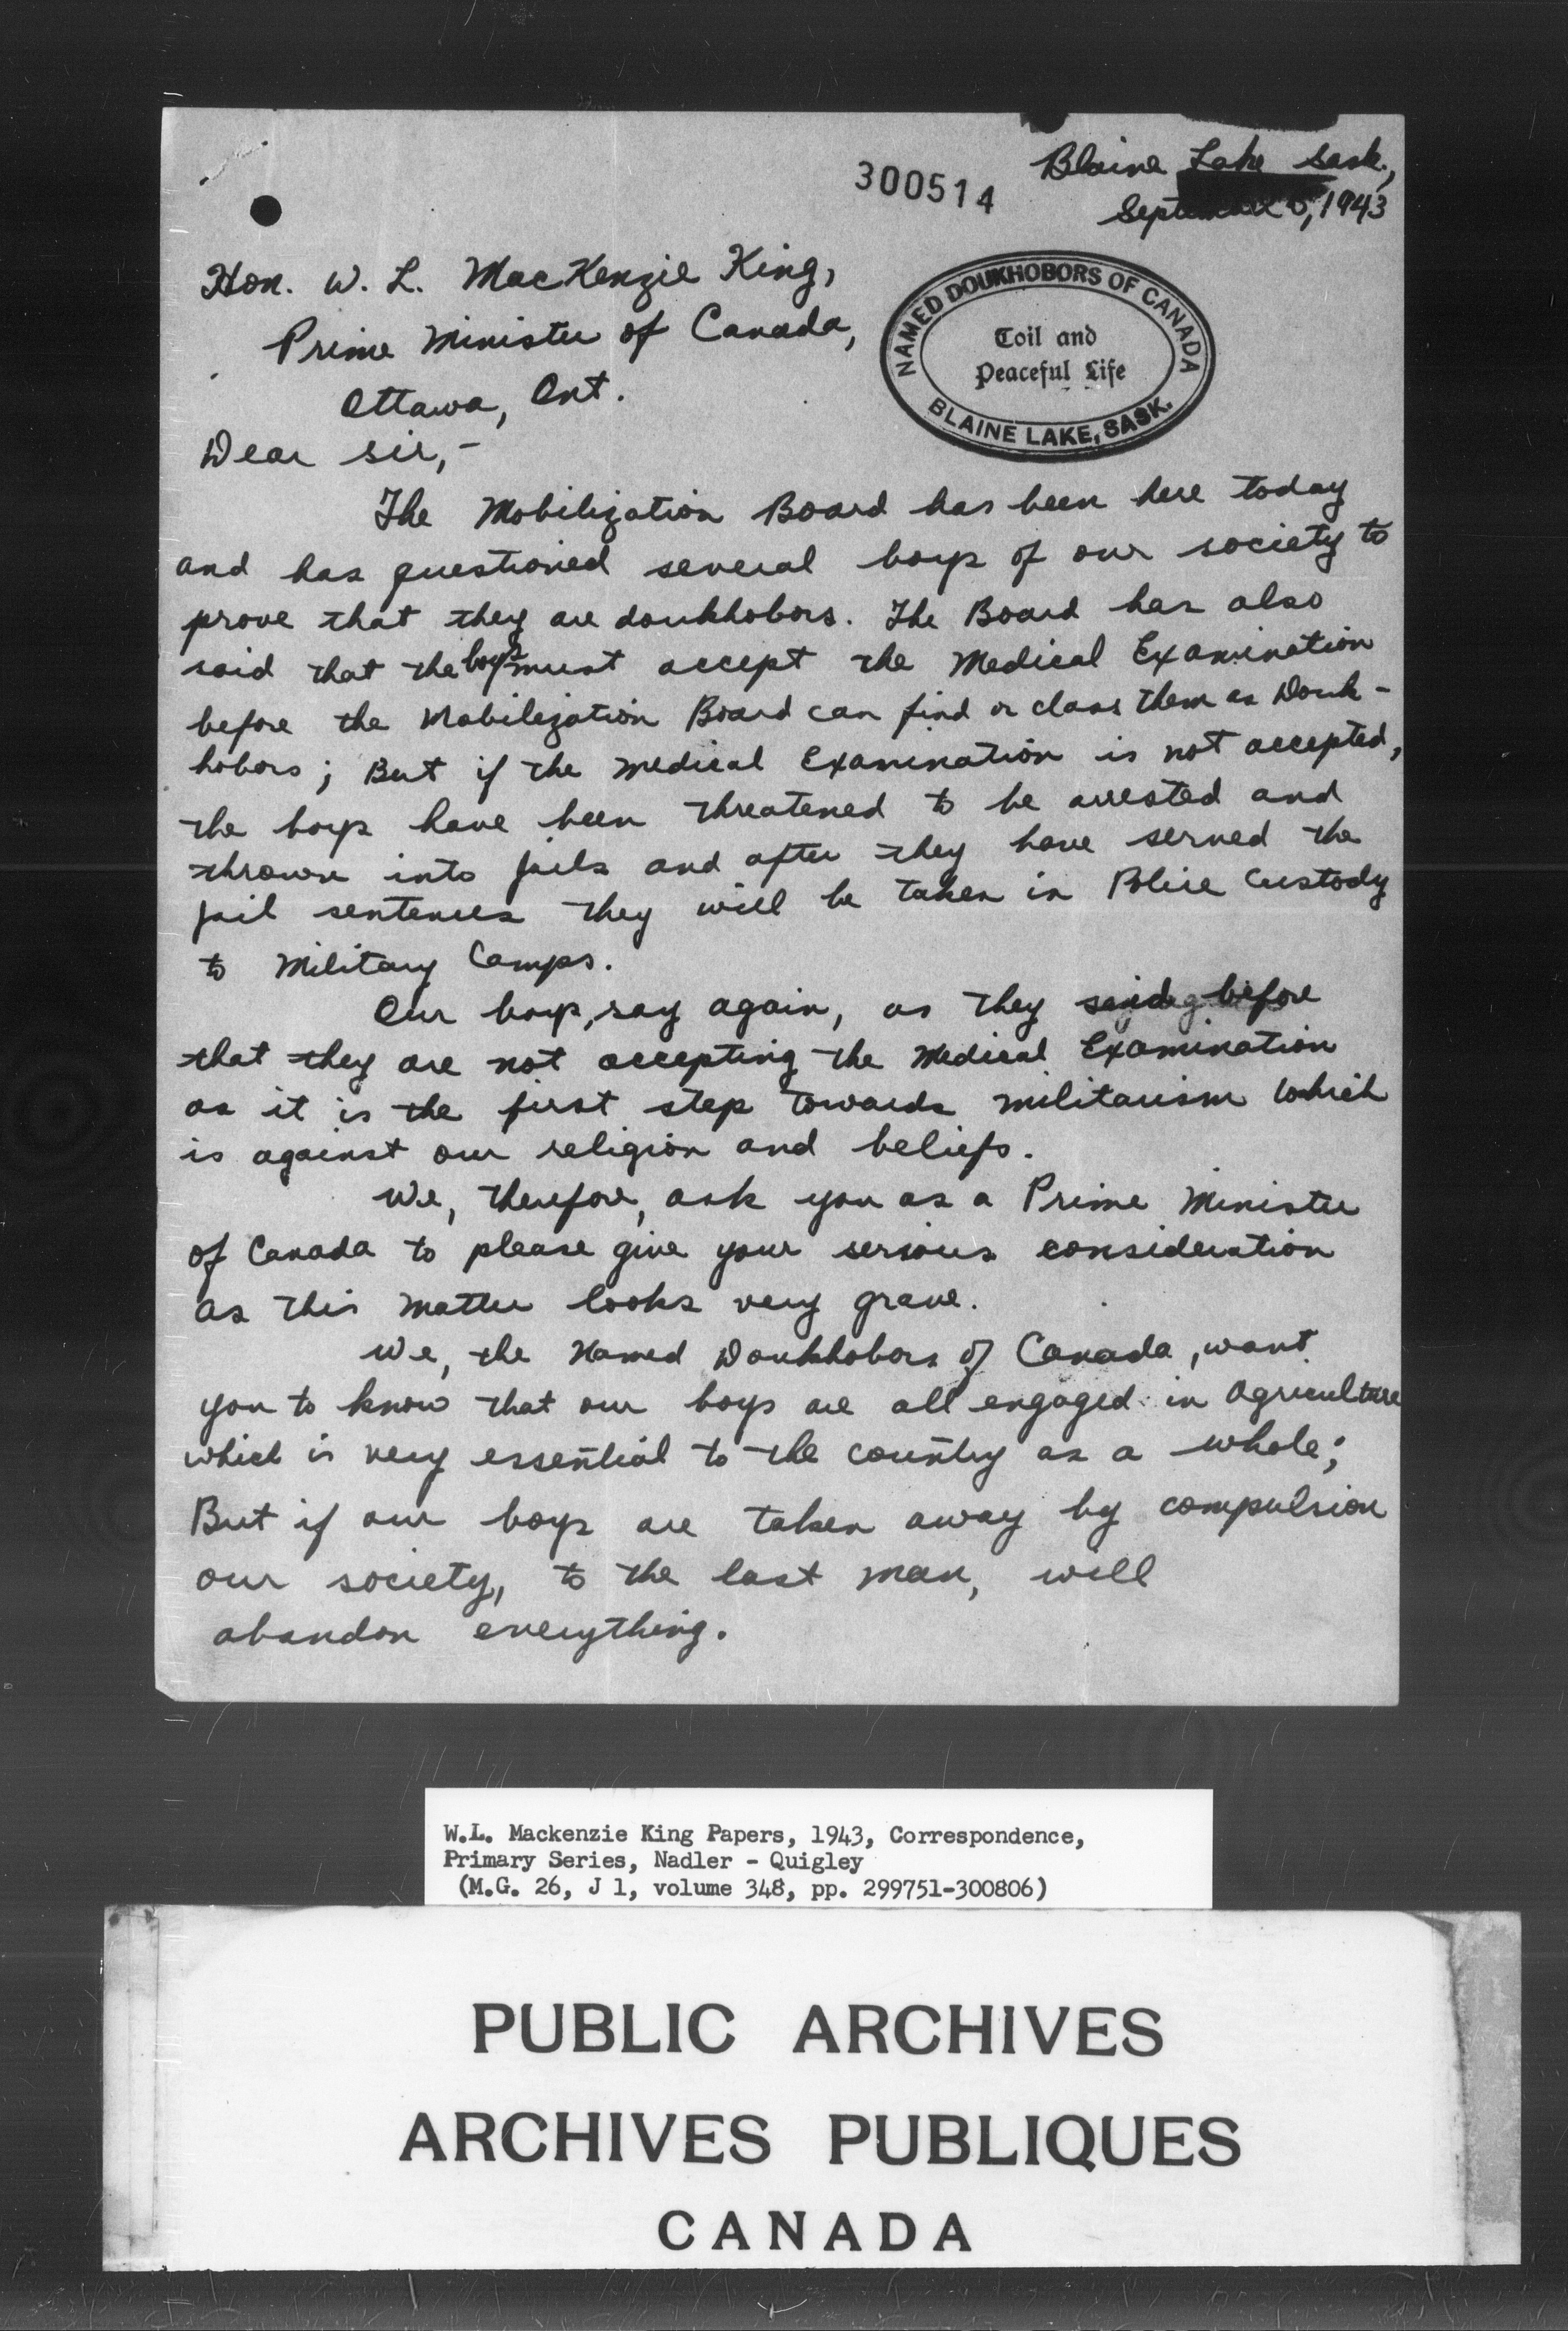 300514
Blaine Lake Sask.,
September 5, 1943
Hon. W. L. MacKenzie King,
Prime Minister of Canada,
Ottawa, Ont.
NAMED DOUKHOBORS OF CANADA
Toil and
Peaceful Life
BLAINE LAKE, SASK.
Dear sir,-
The Mobilization Board has been here today
and has questioned several boys of our society to
prove that they are doukhobors. The Board has also
said that the boys must accept the Medical Examination
before the Mobilization Board can find or class them as Douk-
hobors; But if the medical Examination is not accepted,
the boys have been threatened to be arrested and
thrown into jails and after they have served the
jail sentences they will be taken in Police Custody
to Military Camps.
Our boys, say again, as they said before
that they are not accepting the Medical Examination
as it is the first step towards militarism which
is against our religion and beliefs.
We, therefore, ask you as a Prime Minister
of Canada to please give your serious consideration
as this matter looks very grave.
We, the Named Doukhobors of Canada, want
you to know that our boys are all engaged in Agriculture
which is very essential to the country as a whole;
But if our boys are taken away by compulsion
our society, to the last man, will
abandon everything.
W.L. Mackenzie King Papers, 1943, Correspondence,
Primary Series, Nadler - Quigley
(M.G. 26, J 1, volume 348, pp. 299751-300806)
PUBLIC ARCHIVES
ARCHIVES PUBLIQUES
CANADA